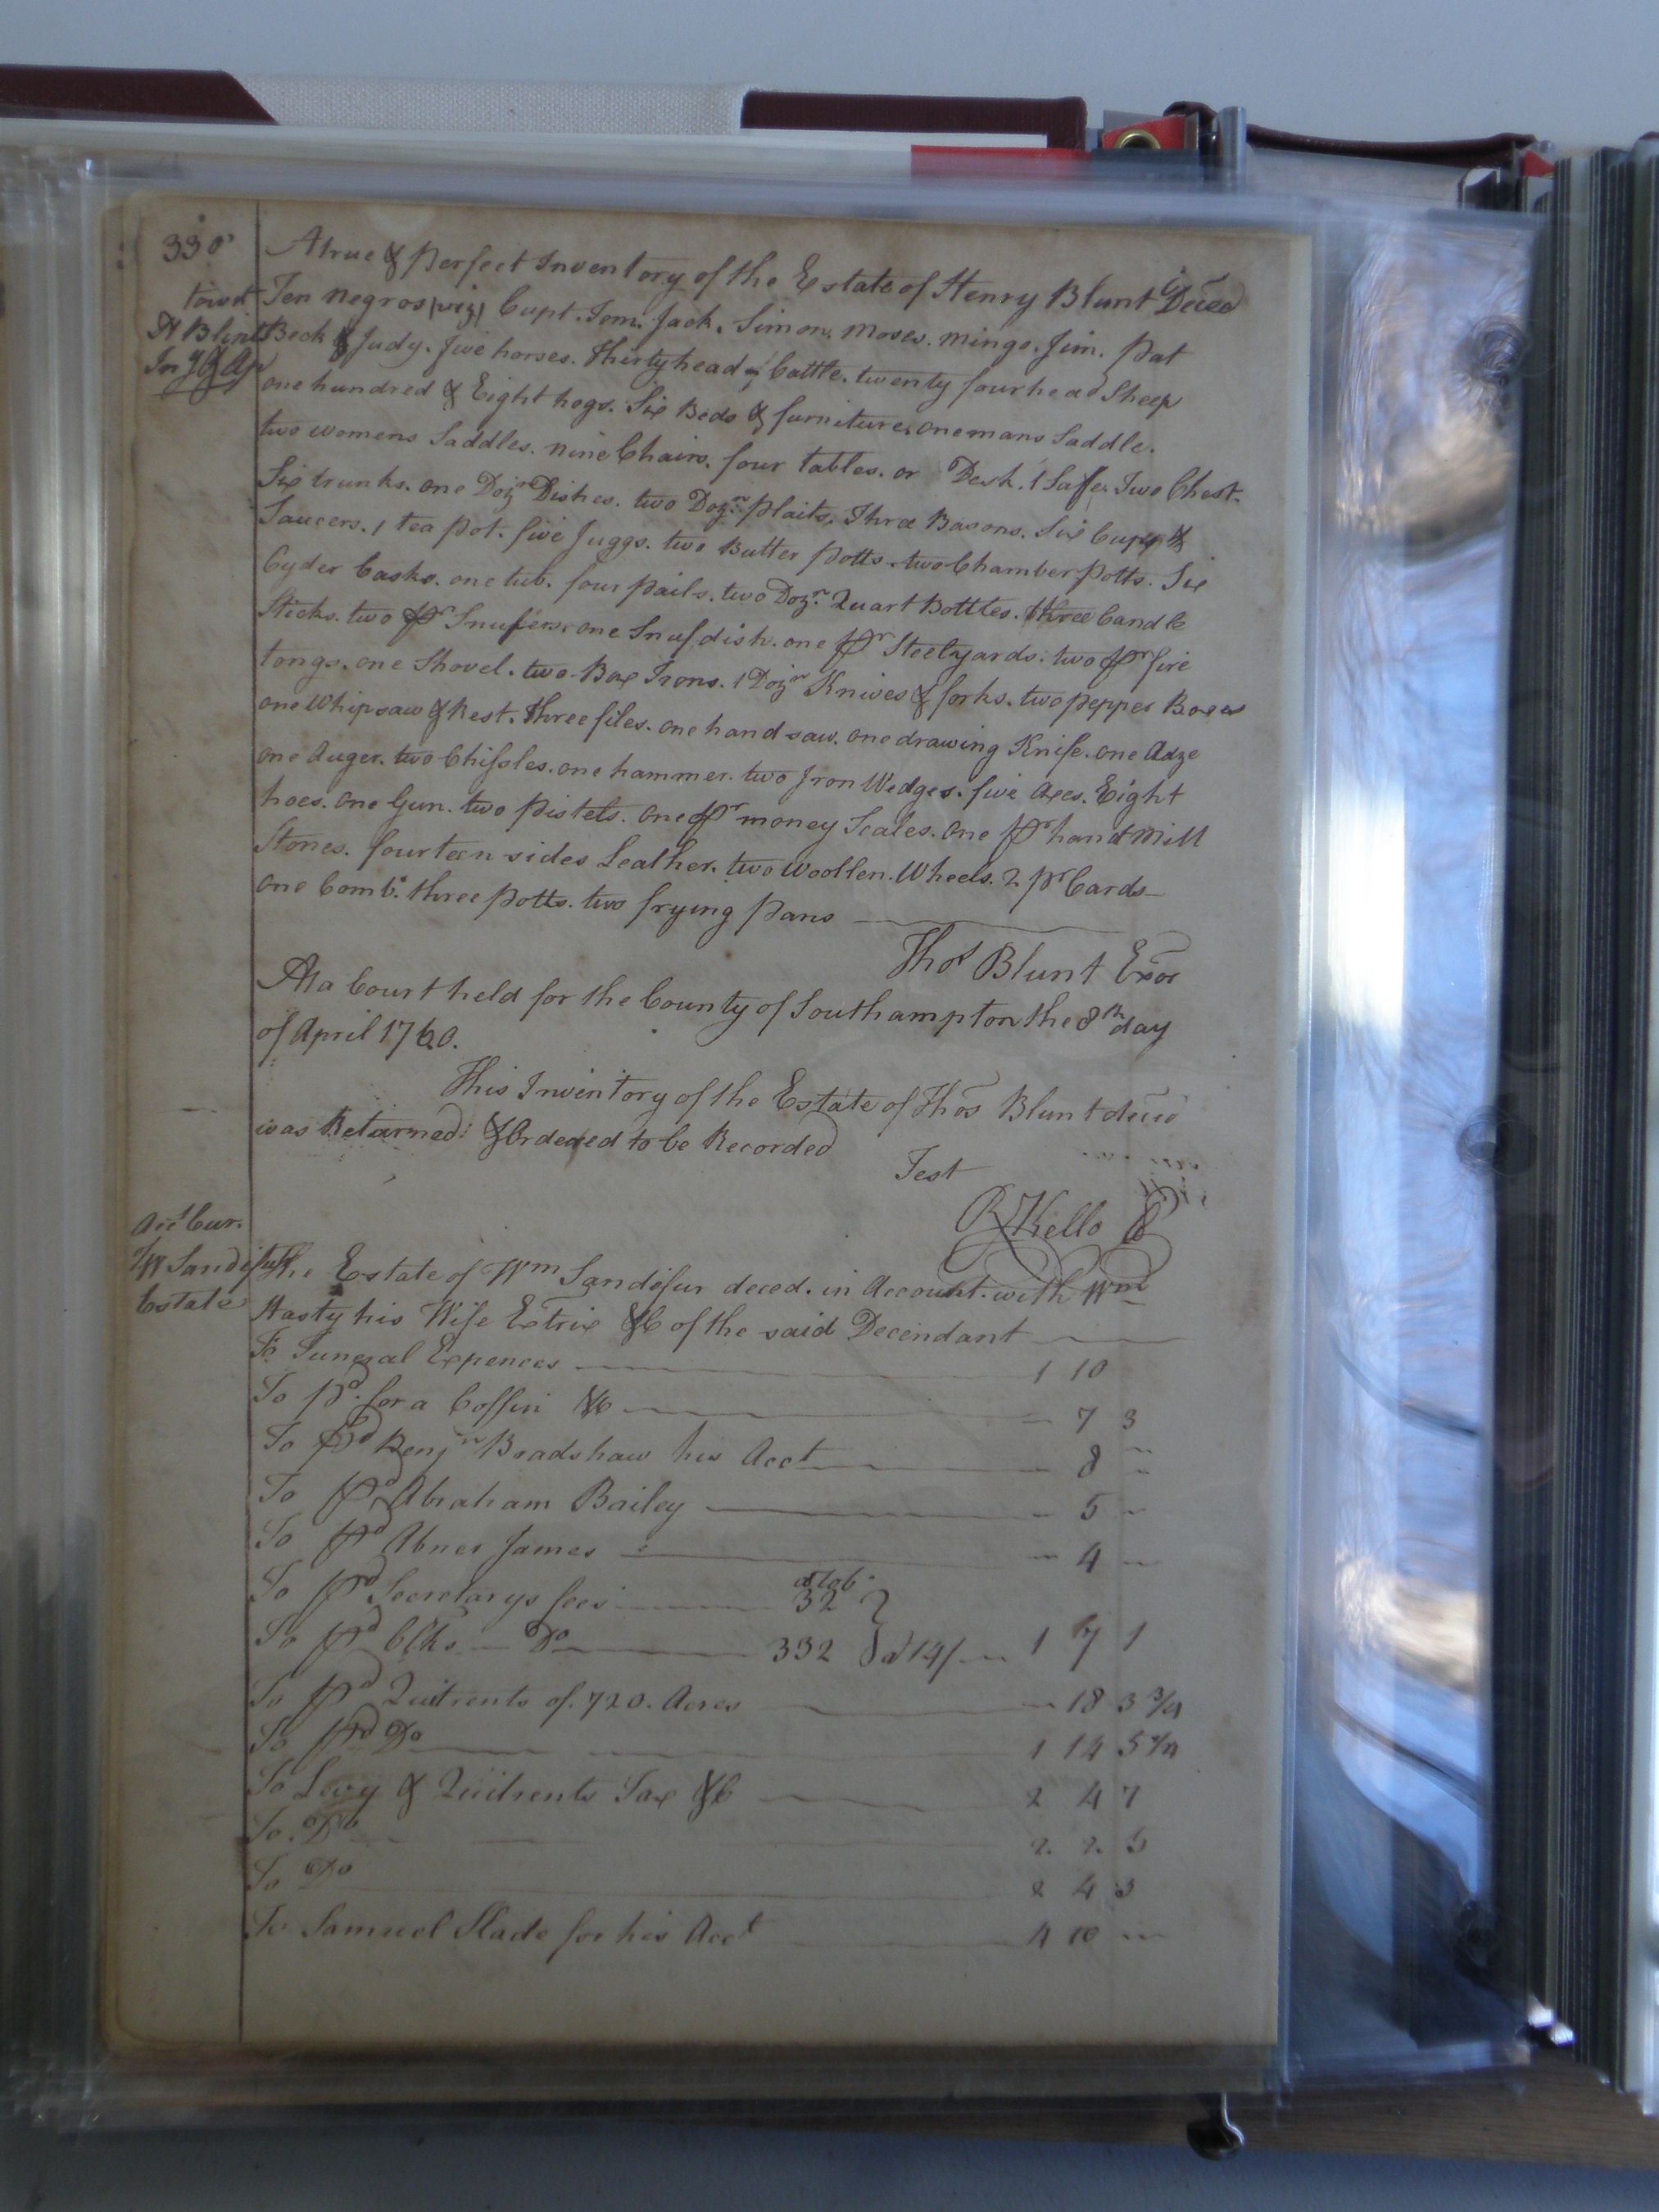 330
A true & perfect Inventory of the Estate of Henry Blunt Deced
towit Ten negros (viz) Cupt. Tom. Jack. Simon. Moses. Mingo. Jim. Pat
H Blunts Beck & Judy. five horses. thirty head of Cattle. twenty four head Sheep
one hundred & Eight hogs. Six Beds & furniture, one mans Saddle.
two womens Saddles. nine Chairs. four tables. or Desk. 1 Safe. Two Chest.
Six trunks. one Dozn Dishes. two Dozn plaits. Three Basons. Six Cups &
Saucers. 1 tea pot. five Juggs. two Butter potts. two Chamber potts. Six
Cyder Casks. one tub. four pails. two Dozn Quart Bottles. three Candle
Sticks. two pr Snufers. one Snuf dish. one pr Steelyards. two pr fire
tongs. one Shovel. two Box Irons. 1 Dozn Knives & forks. two pepper Boxes
one Whipsaw & Rest. three files. one hand saw. one drawing Knife. one Adze
one Auger. two Chissles. one hammer. two Iron Wedges. five Axes. Eight
hoes. one Gun. two pistels. one pr money Scales. one pr hand Mill
Stones. fourteen sides Leather. two Woollen Wheels. 2 pr Cards
one Comb. three potts. two frying pans
Thos Blunt Exor
At a Court held for the County of Southampton the 8th day
of April 1760.
This Inventory of the Estate of Thos Blunt deced
was Returned & Ordered to be Recorded
Test
R Kello
Acct Cur.
W Sandifur The Estate of Wm Sandifur deced. in Account with Wm
Estate Hasty his Wife Extrix &C of the said Decendant
To Funeral Expences 1 10
To pd for a Coffin &C 7 3
To pd Benjn Bradshaw his Acct 8
To pd Abraham Bailey 5
To pd Abner James 4
To pd Secretarys fees 32
To pd Clks Do 332 a 14/ 1 7 1
To pd Quitrents of 720. Acres 18 3 3/4
To pd Do 1 14 5
To Levy & Quitrents Tax &C 2 4 7
To Do 2. 2. 5
To Do 2 4 3
To Samuel Slade for his Acct 4 10